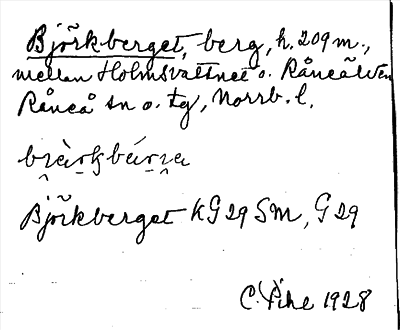 Björkberget, berg, h. 209 m.,
mellan Holmsvattnet o. Råneälven
Råneå sn o. tg, Norrb. l.
Björkberget KG 29 SM, G 29
C. Pihl 1928